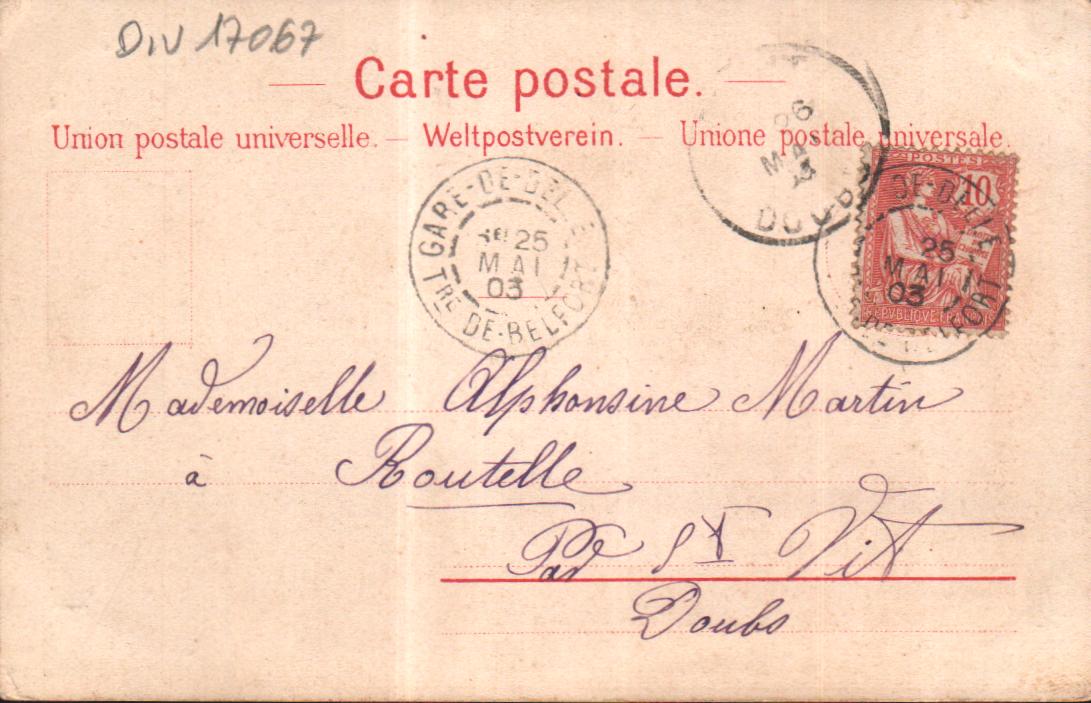 Div 17067
Carte postale.
Union postale universelle. — Weltpostverein. — Unione postale universale.
26
MAI
DOUBS
POSTES
10
REPUBLIQUE FRANÇAISE
GARE-DE-DELLE
25
MAI
03
TRE DE-BELFORT
DE-DELLE
25
MAI
03
BELFORT
Mademoiselle Alphonsine Martin
à Routelle
Par St Vit
Doubs